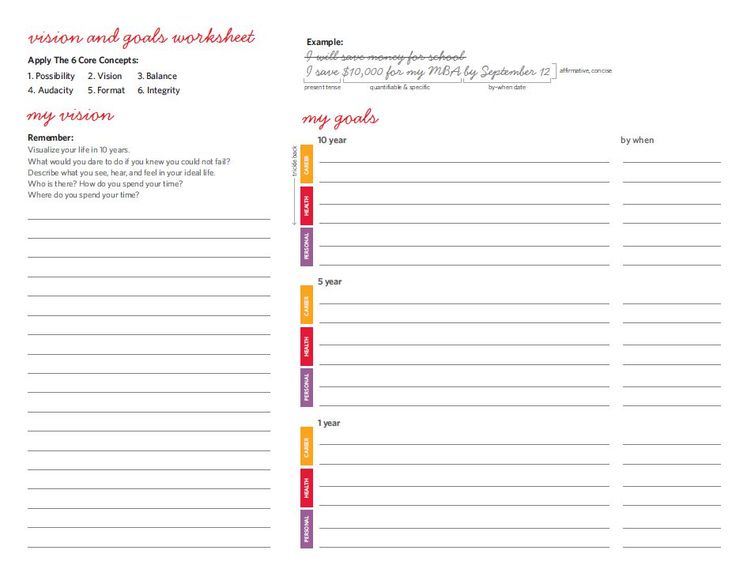 vision and goals worksheet
Apply The 6 Core Concepts:
1. Possibility 2. Vision 3. Balance
4. Audacity 5. Format 6. Integrity
my vision
Remember:
Visualize your life in 10 years.
What would you dare to do if you knew you could not fail?
Describe what you see, hear, and feel in your ideal life.
Who is there? How do you spend your time?
Where do you spend your time?
Example:
I will save money for school
I save $10,000 for my MBA by September 12
affirmative, concise
present tense quantifiable & specific by-when date
my goals
10 year by when
trickle back
CAREER
HEALTH
PERSONAL
5 year
CAREER
HEALTH
PERSONAL
1 year
CAREER
HEALTH
PERSONAL